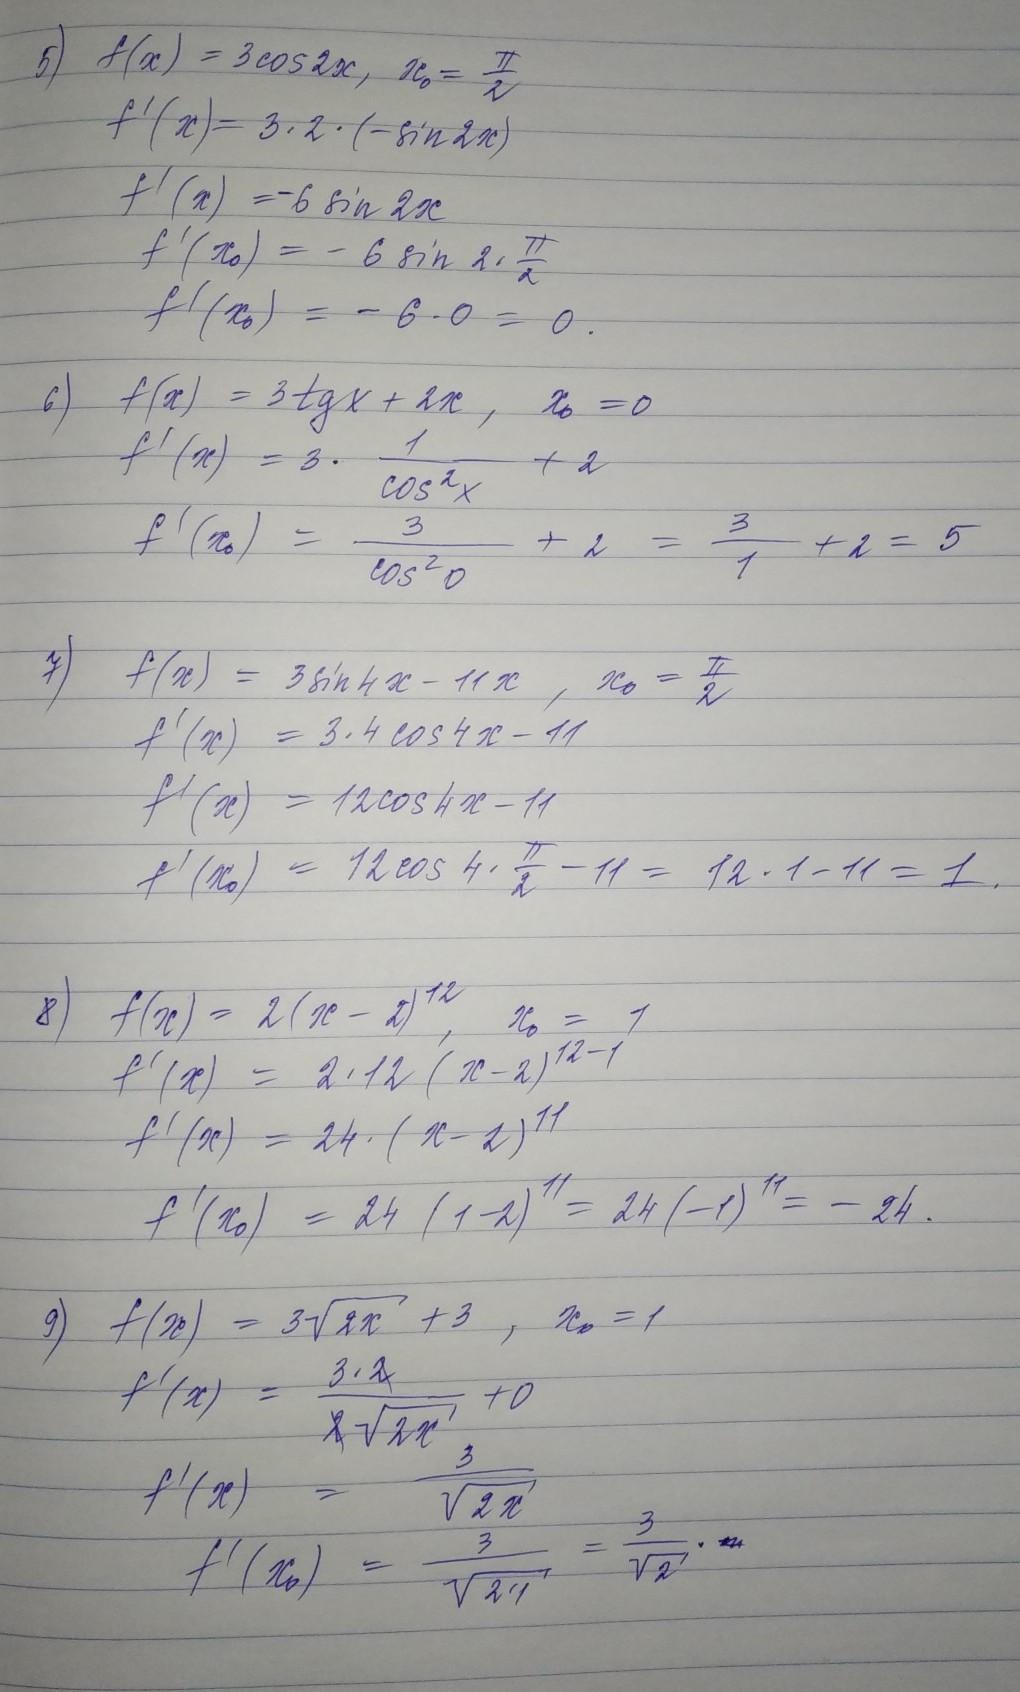 5) f(x) = 3cos2x, x₀ = π/2
f'(x) = 3·2·(-sin2x)
f'(x) = -6 sin 2x
f'(x₀) = - 6 sin 2·π/2
f'(x₀) = - 6·0 = 0.
6) f(x) = 3tgx + 2x, x₀ = 0
f'(x) = 3· 1/cos²x + 2
f'(x₀) = 3/cos²0 + 2 = 3/1 + 2 = 5
7) f(x) = 3sin4x - 11x, x₀ = π/2
f'(x) = 3·4cos4x - 11
f'(x) = 12cos4x - 11
f'(x₀) = 12cos4·π/2 - 11 = 12·1 - 11 = 1.
8) f(x) = 2(x - 2)¹², x₀ = 1
f'(x) = 2·12(x-2)¹²⁻¹
f'(x) = 24·(x-2)¹¹
f'(x₀) = 24(1-2)¹¹ = 24(-1)¹¹ = - 24.
9) f(x) = 3√2x + 3, x₀ = 1
f'(x) = 3·2/2√2x + 0
f'(x) = 3/√2x
f'(x₀) = 3/√2·1 = 3/√2.